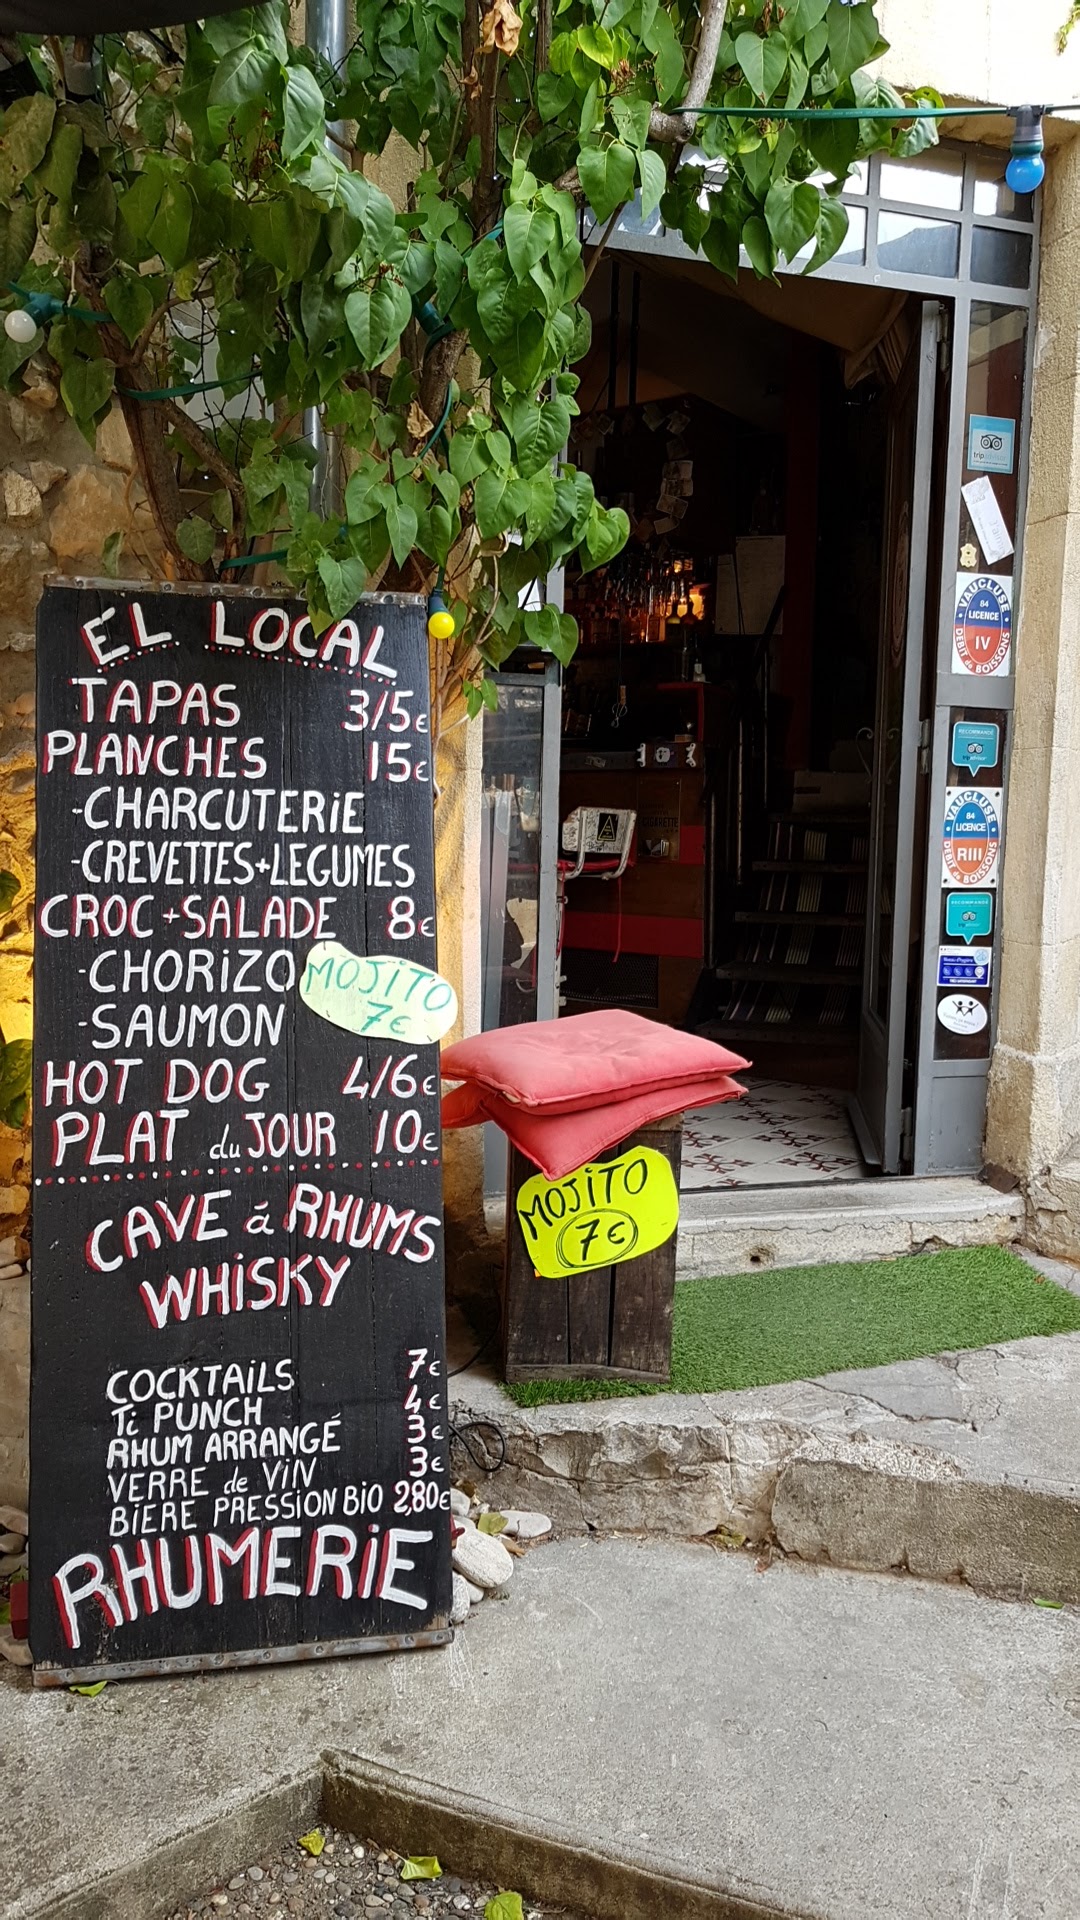 ÉL LOCAL
TAPAS 3/5€
PLANCHES 15€
-CHARCUTERiE
-CREVETTES+LEGUMES
CROC+SALADE 8€
-CHORiZO
-SAUMON
MOJiTO
7€
HOT DOG 4/6€
PLAT du JOUR 10€
CAVE à RHUMS
WHiSKY
COCKTAiLS 7€
Ti PUNCH 4€
RHUM ARRANGÉ 3€
VERRE de ViN 3€
BiERE PRESSiON BiO 2,80€
RHUMERiE
MOJiTO
7€
tripadvisor
VAUCLUSE
84
LICENCE
IV
DEBIT de BOISSONS
RECOMMANDÉ
tripadvisor
VAUCLUSE
84
LICENCE
RIII
DEBIT de BOISSONS